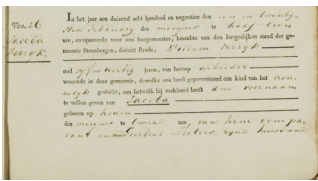 No. 26
Jacoba
Perryk.
In het jaar een duizend acht honderd en negentien den een en twintig-
sten February des morgens te half twee
ure, compareerde voor ons burgemeester, beambte van den burgerlijken stand der ge-
meente Steenbergen, district Breda, Willem Perryk
oud vyf en veertig jaren, van beroep arbeider
wonende in deze gemeente, dewelke ons heeft gepresenteerd een kind van het vrou-
welyk geslacht, aan hetwelk hij verklaard heeft den voornaam
te willen geven van Jacoba
geboren op heden
des morgens te twee ure, van hem compa-
rant en Pieters, zyne huisvrouw